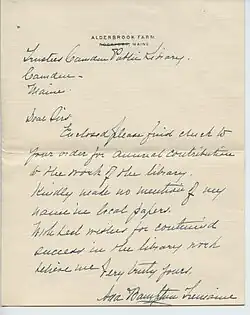 ALDERBROOK FARM
ROCKPORT, MAINE
Trustees Camden Public Library.
Camden -
Maine.
Dear Sirs,
Enclosed please find check to
your order for annual contribution
to the work of the library.
Kindly made no mention of my
name in local papers.
With best wishes for continued
success in the library work
believe me Very truly yours,
Ada Hampton